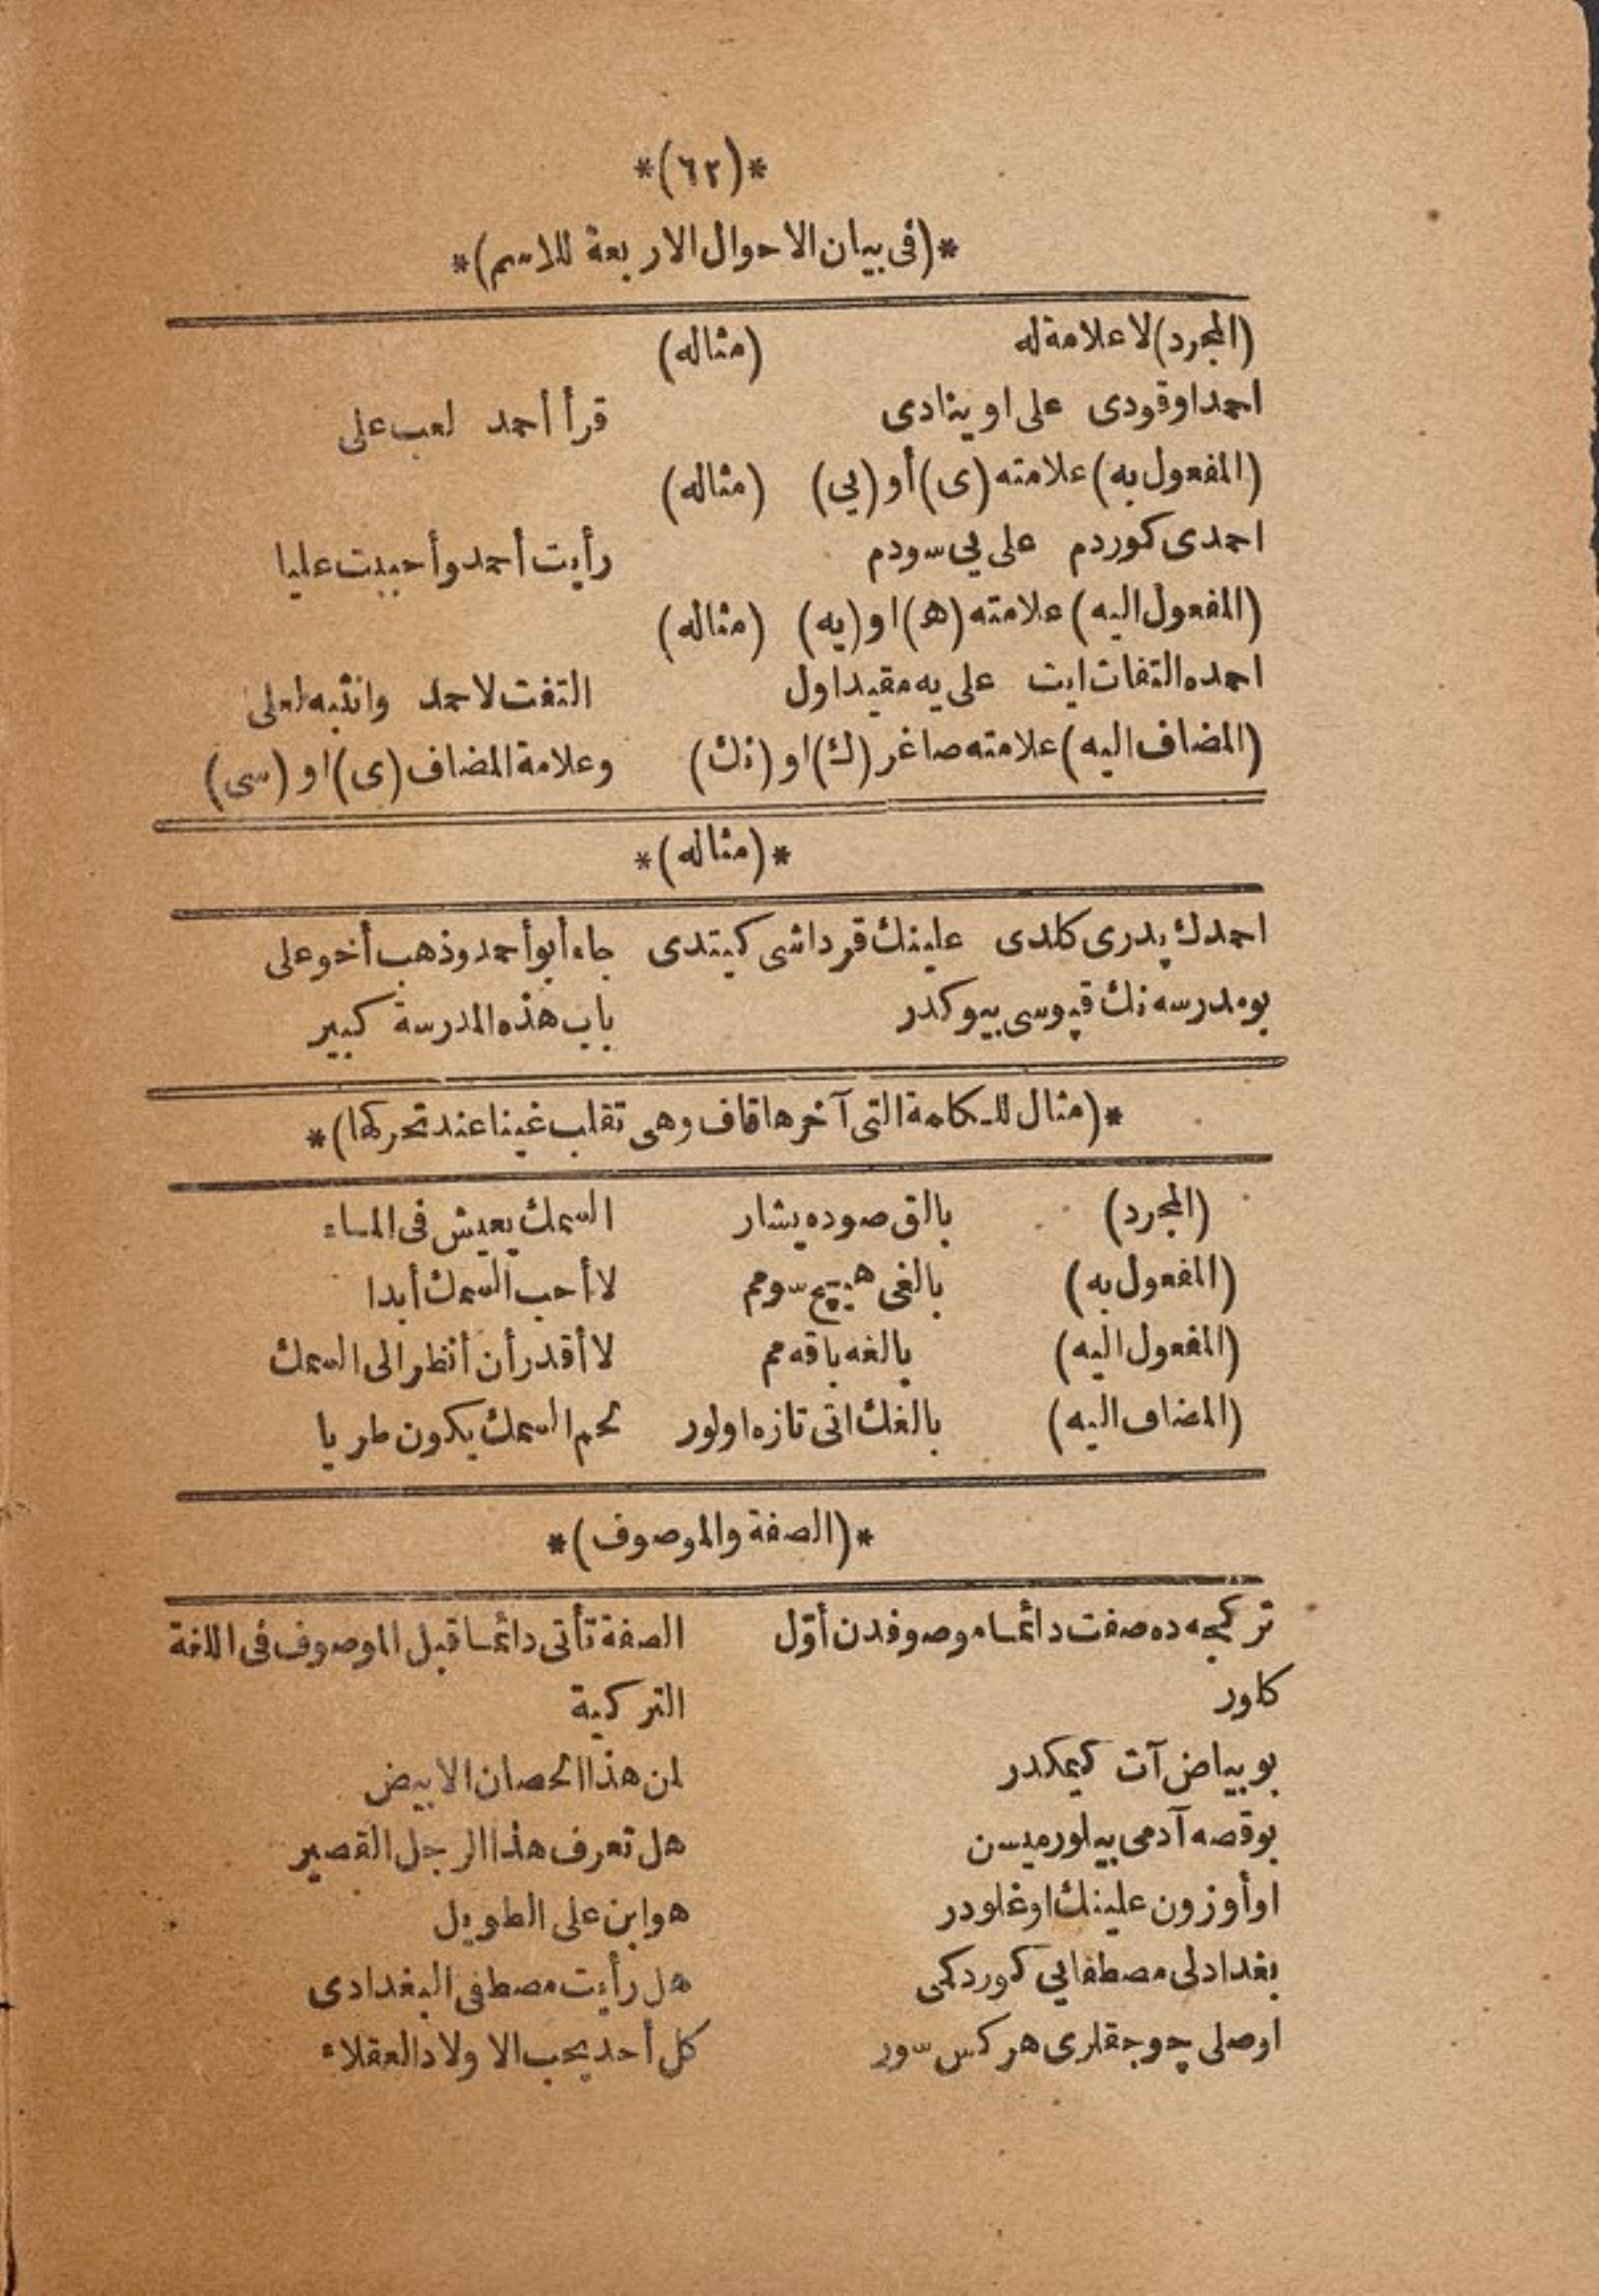 *(٦٢)*
*(فى بيان الاحوال الاربعة للاسم)*
(المجرد) لاعلامة له (مثاله)
احمد اوقودى على اوينادى قرأ أحمد لعب على
(المفعول به) علامته (ى) أو (يى) (مثاله)
احمدى كوردم على يى سودم رأيت أحمد وأحببت عليا
(المفعول اليه) علامته (ه) او (يه) (مثاله)
احمده التفات ايت على يه مقيد اول التفت لاحمد وانتبه لعلى
(المضاف اليه) علامته صاغر (ك) او (نك) وعلامة المضاف (ى) او (سى)
*(مثاله)*
احمدك پدرى كلدى علينك قرداشى كيتدى جاء أبو أحمد وذهب أخو على
بو مدرسه نك قپوسى بيوكدر باب هذه المدرسة كبير
*(مثال للكلمة التى آخرها قاف وهى تقلب غينا عند تحركها)*
(المجرد) بالق صوده يشار السمك يعيش فى الماء
(المفعول به) بالغى هيچ سومم لا أحب السمك أبدا
(المفعول اليه) بالغه باقه مم لا أقدر أن أنظر الى السمك
(المضاف اليه) بالغك اتى تازه اولور لحم السمك يكون طريا
*(الصفة والموصوف)*
تركجه ده صفت دائما موصوفدن أوّل الصفة تأتى دائما قبل الموصوف فى اللغة
كلور التركية
بو بياض آت كيمكدر لمن هذا الحصان الابيض
بو قصه آدمى بيلورميسن هل تعرف هذا الرجل القصير
او أوزون علينك اوغلودر هو ابن على الطويل
بغدادلى مصطفايى كوردكمى هل رأيت مصطفى البغدادى
اوصلى چوجقلرى هركس سور كل أحد يحب الاولاد العقلاء